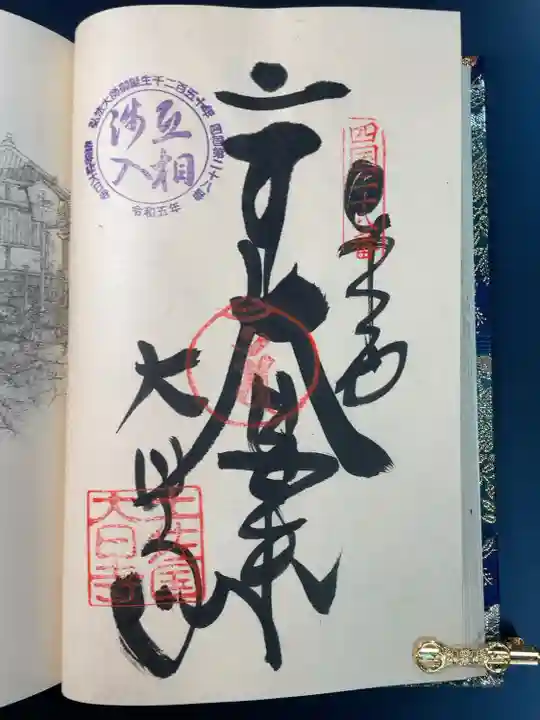 四国第二十八番
奉納
大日如来
大日寺
土佐国
大日寺
弘法大師御誕生千二百五十年 四国第二十八番
互相
渉入
令和五年